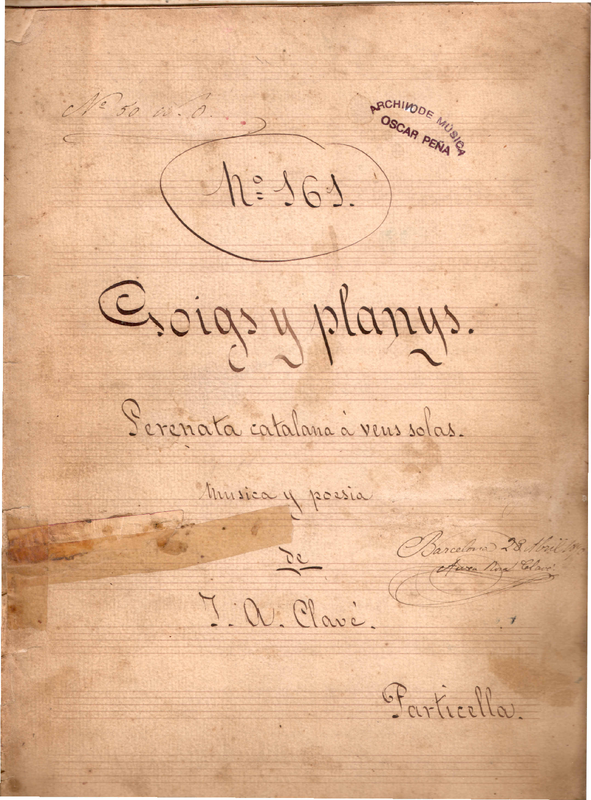 ARCHIVO DE MÚSICA
OSCAR PEÑA
Nº 161.
Goigs y planys.
Serenata catalana à veus solas.
Musica y poesia
de
Barcelona 28 Abril
Clavé
J. A. Clavé.
Particella.